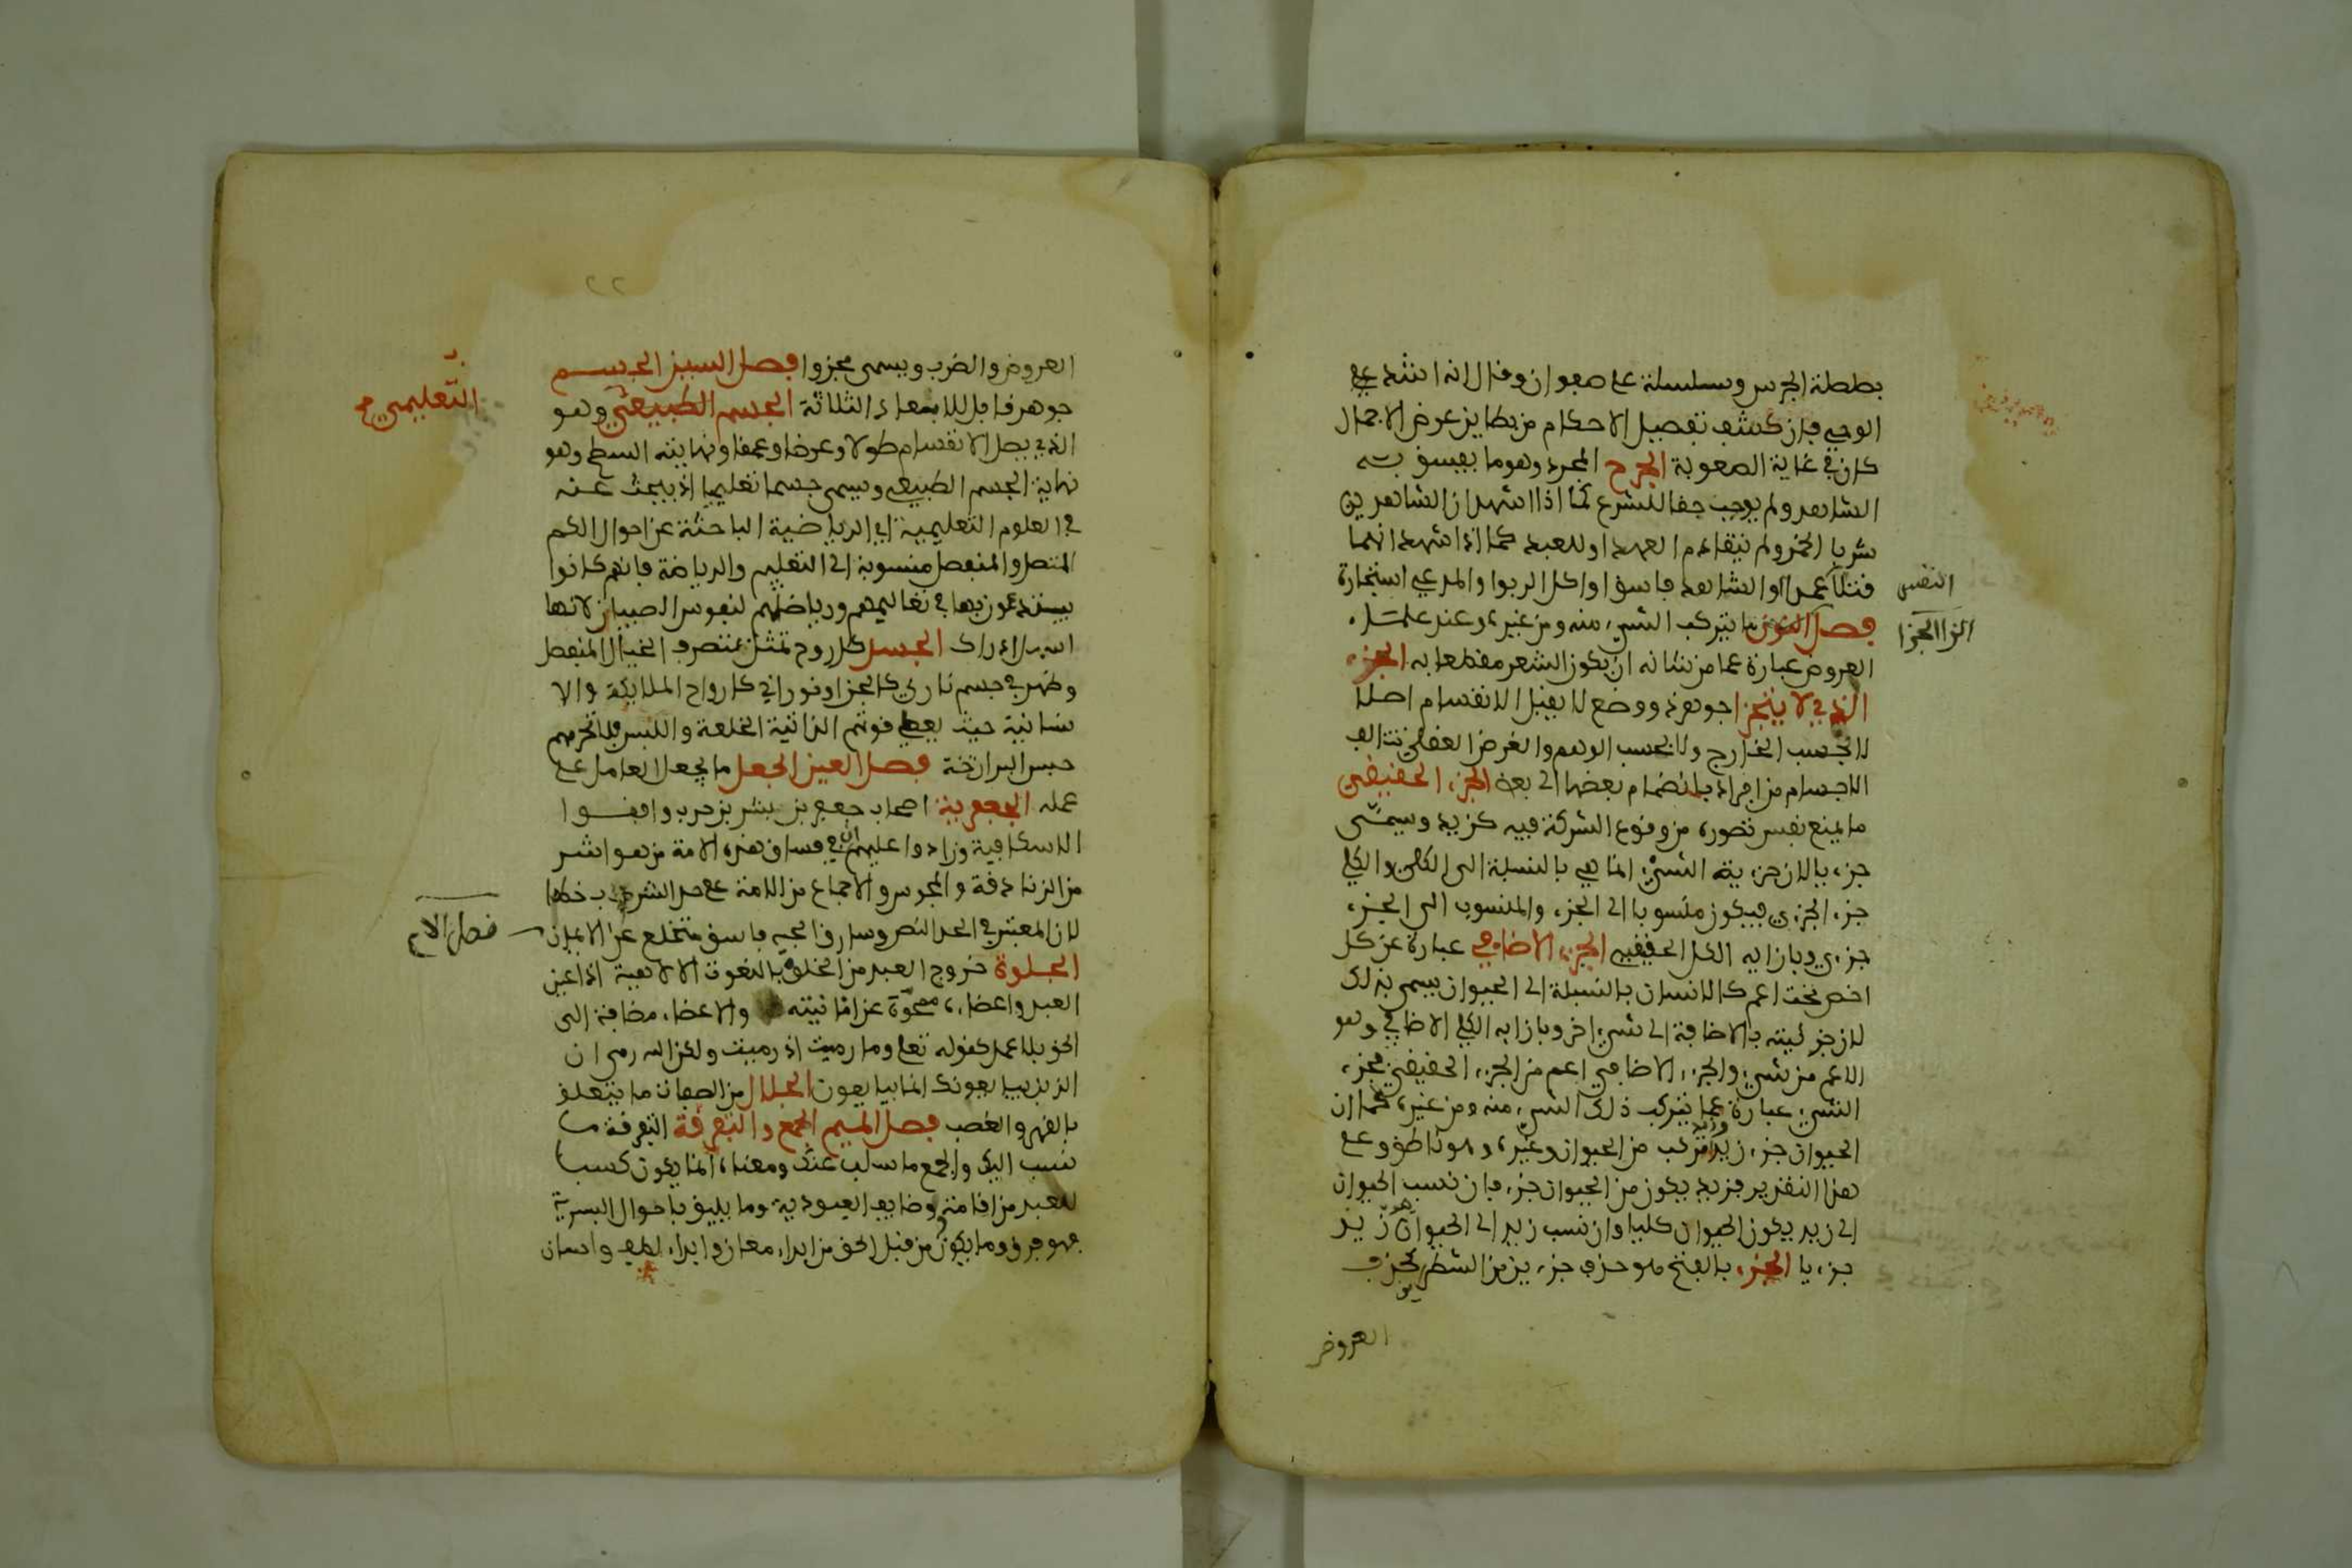 بططلة الجرس وسلسلة على صفوان وقال انه اشد على
الوحي فإن كشف تفصيل الاحكام من بطاين عرض الاجمال
كان في غاية الصعوبة الجرح المجرد وهو ما يفسق به
الشاهد ولم يوجب حقا للشرع كما اذا شهد ان الشاهدين
شربا الخمر ولم يتقادم العهد او للعبد كما اذا شهد انهما
قتلا عمدا او الشاهد فاسق او اكل الربوا والمدعي استجاره
النفس
فصل الزا الجزا ما يتركب الشيء منه ومن غيره وعند علماء
العروض عبارة عما من شانه ان يكون الشعر مقطعا به الجزء
الذي لا يتجزا جوهر ذو وضع لا يقبل الانقسام اصلا
لا بحسب الخارج ولا بحسب الوهم والفرض العقلي تتالف
الاجسام من افراده بانضمام بعضها الى بعض الجزء الحقيقي
ما يمنع نفس تصوره من وقوع الشركة فيه كزيد ويسمى
جزءيا لان جزءية الشيء انما هي بالنسبة الى الكلي والكلي
جزء الجزءي فيكون منسوبا الى الجزء والمنسوب الى الجزء
جزءي وبازايه الكل الحقيقي الجزء الاضافي عبارة عن كل
اخص تحت اعم كالانسان بالنسبة الى الحيوان يسمى بذلك
لان جزئيته بالاضافة الى شيء اخر وبازايه الكلي الاضافي وهو
الاعم من شيء والجزء الاضافي اعم من الجزء الحقيقي فجزء
الشيء عبارة عما يتركب ذلك الشيء منه ومن غيره كما ان
الحيوان جزء زيد وزيد مركب من الحيوان وغيره وهو ناطق وعلى
هذا التقدير فزيد يكون من الحيوان جزء فإن نسب الحيوان
الى زيد يكون الحيوان كليا وان نسب زيد الى الحيوان هو زيد
جزءيا الجزء بالفتح هو حذف جزءين من الشطرين كحذف
العروض
العروض والضرب ويسمى مجزوا فصل السين الجسم
جوهر قابل للابعاد الثلاثة الجسم الطبيعي وهو
التعليمي صح
الذي يصل الانقسام طولا وعرضا وعمقا ونهايته السطح وهو
نهاية الجسم الطبيعي ويسمى جسما تعليميا اذ يبحث عنه
في العلوم التعليمية اي الرياضية الباحثة عن احوال الكم
المتصل والمنفصل منسوبة الى التعليم والرياضة فانهم كانوا
يبتدعون بها في تعاليمهم ورياضتهم لنفوس الصبيان لانها
اسهل ادراك الجسد كل روح تمثل بتصرف الخيال المنفصل
وظهر في جسم ناري كالجن او نوراني كارواح الملايكة والا
نسانية حيث يعطي قوتهم الذاتية الخلعة واللبس فلا تحرمهم
حبس البرازخة فصل العين الجعل ما يجعل العامل على
عمله الجعفرية اصحاب جعفر بن بشر بن حرب وافقوا
الاسكافية وزادوا عليهم ان في فساق هذه الامة من هو اشر
من الزنادقة والمجوس والاجماع من الامة على حد الشرب خطا
لان المعتبر في الحد النص وسارق الحبة فاسق متخلع عن الايمان
فصل الام
الجلوة خروج العبد من الخلوة بالنعوت الالاهية اذ اعين
العبد واعضاءه ممحوة عن انانيته والاعضاء مضافة الى
الحق بلا عمل كقوله تعلى وما رميت اذ رميت ولكن الله رمى ان
الذين يبايعونك انما يبايعون الجلال من الصفات ما يتعلق
بالقهر والغضب فصل الميم الجمع والتفرقة التفرقة ما
نسب اليك والجمع ما سلب عنك ومعناه انما يكون كسبا
للعبد من اقامة وضايف العبودية وما يليق باحوال البشرية
فهو فرق وما يكون من قبل الحق من ابداء معان وابداء لطف واحسان